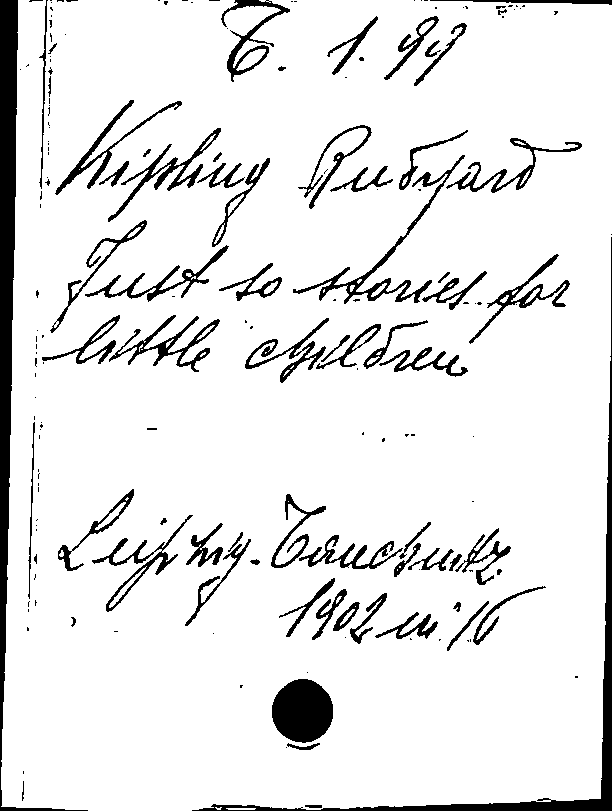 T. 1. 99
Kipling Rudyard
Just so stories for
little children
Leipzig. Tauchnitz.
1902 in 16